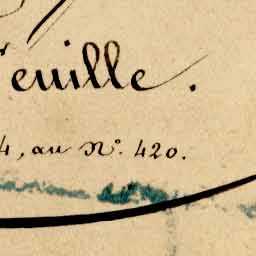 'euille.
4, au N.º 420.